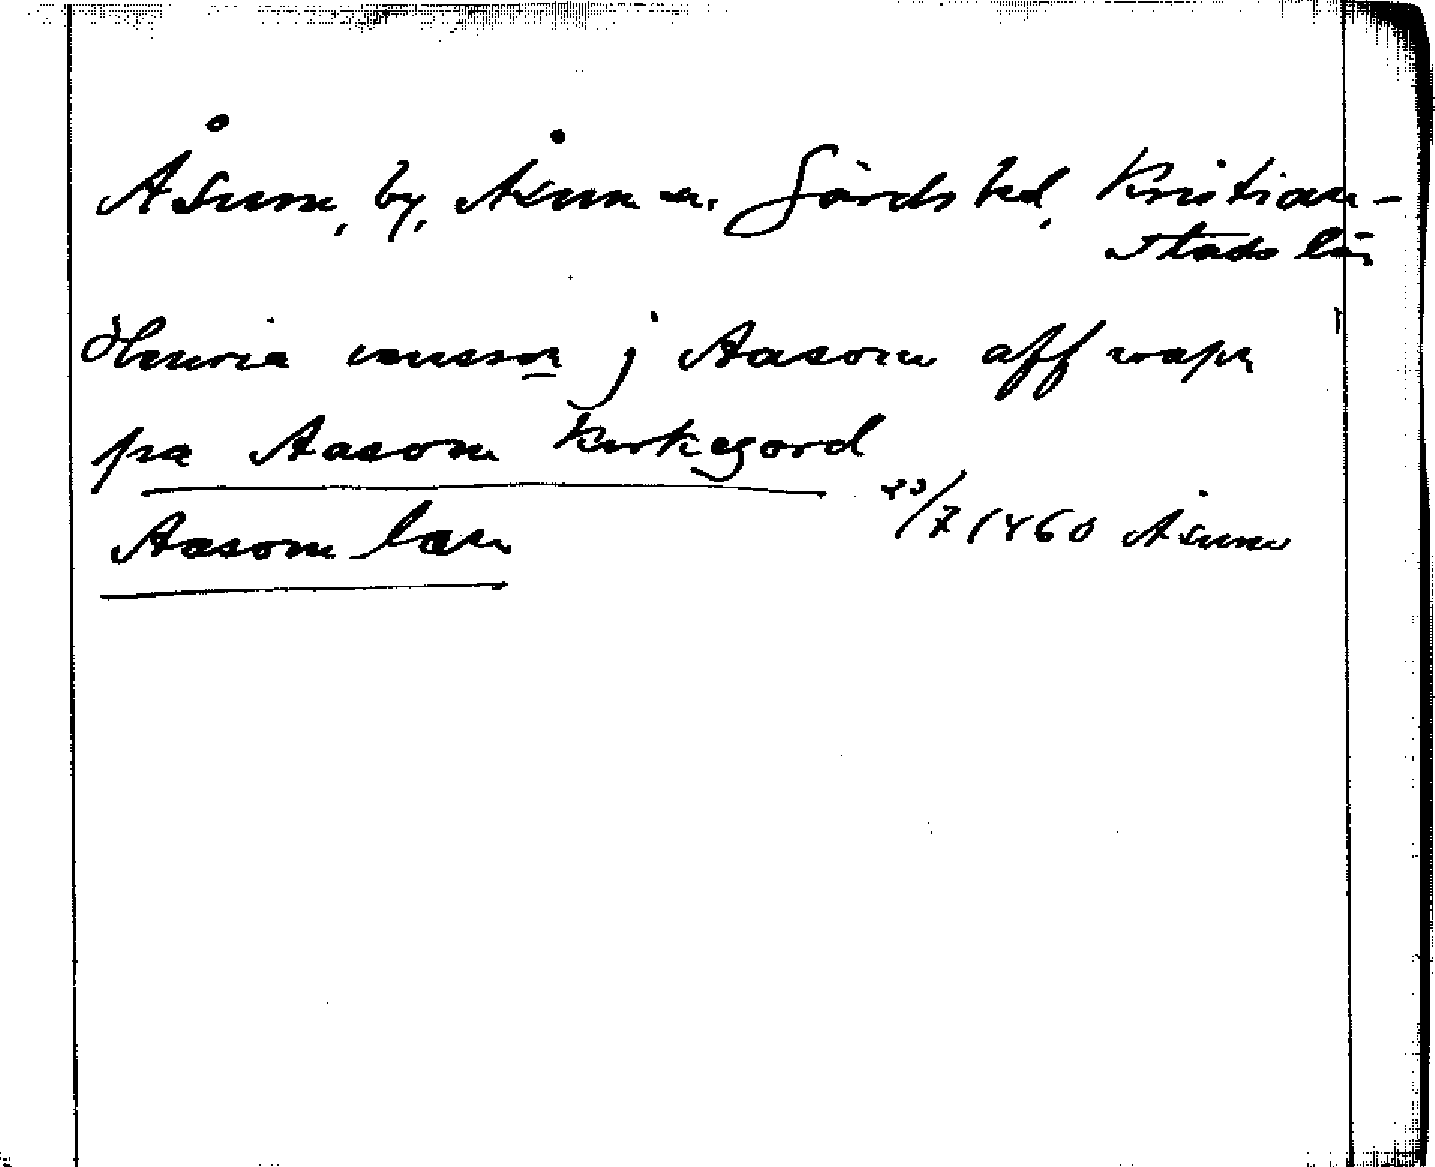 Åsum, by, Åsum sn. Gärds hd, Kristian-
stads län
j Aasom aff wapn
pa Aasom kirkegord
Aasom læn /7 1460 Åsum